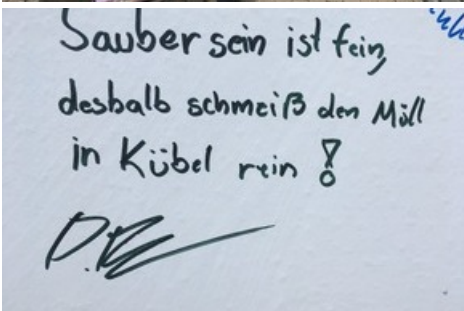 Sauber sein ist fein,
desbalb schmeiß den Müll
in Kübel rein!